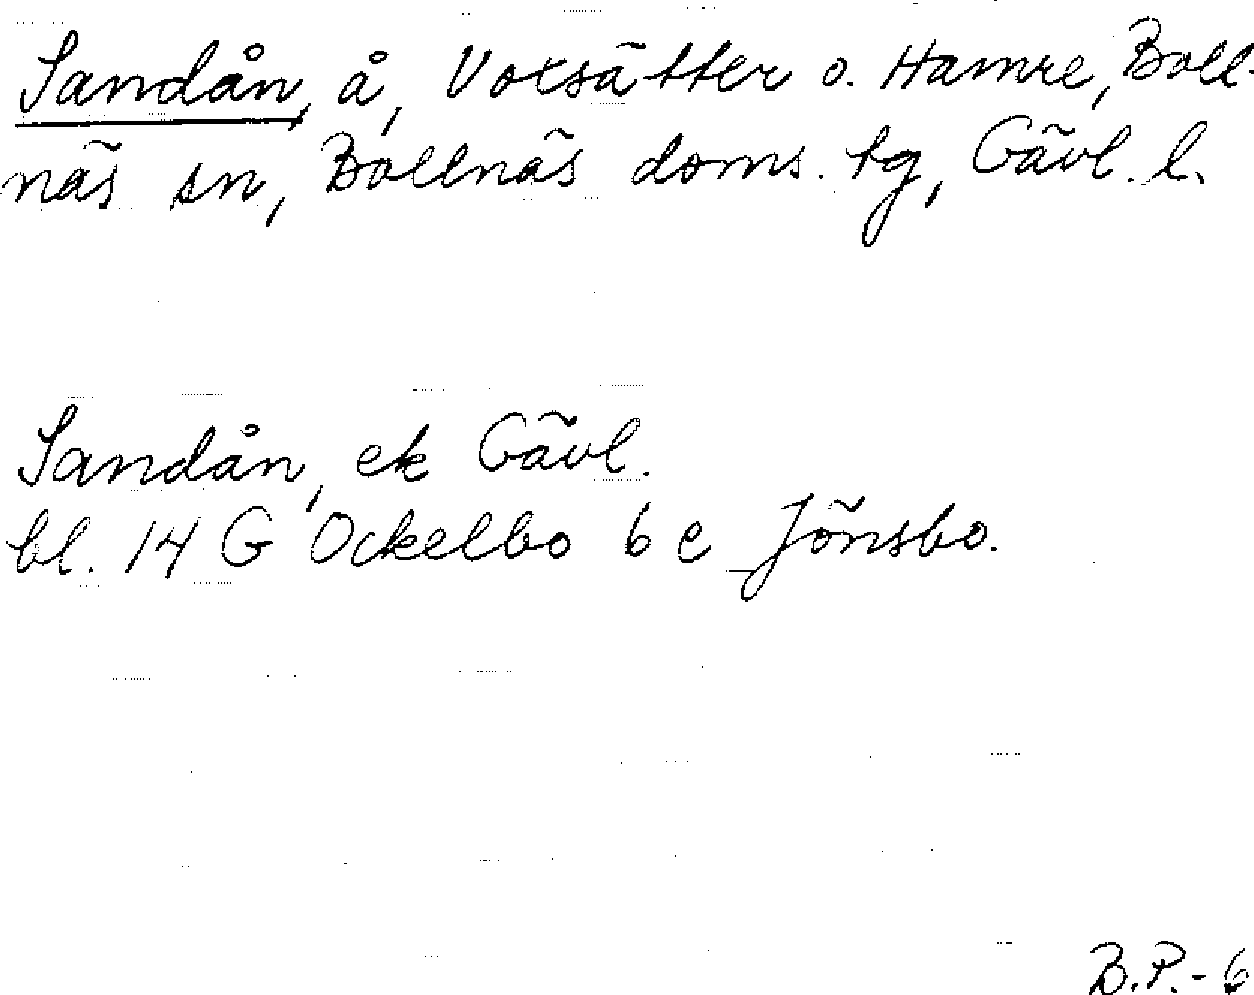 Sandån, å, Voxsätter o. Hamre, Boll-
näs sn, Bollnäs doms. tg, Gävl. l.
Sandån, ek Gävl.
bl. 14 G Ockelbo 6 e Jönsbo.
B.P.-6